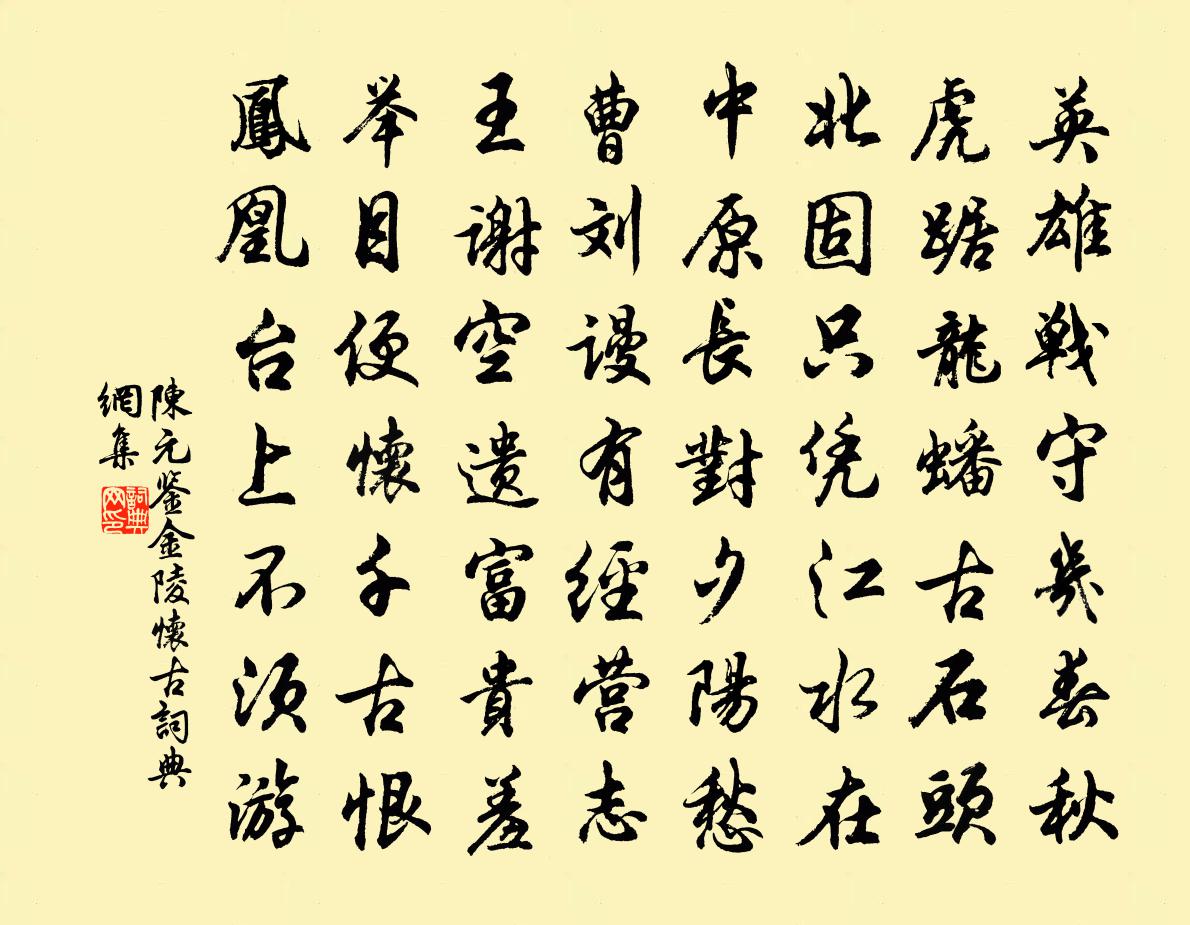 英雄戦守幾春秋
虎踞龍蟠古石頭
北固只凭江水在
中原長對夕陽愁
曹刘谩有經营志
王谢空遗富貴羞
举目便懷千古恨
鳳凰台上不须游
陳元鉴金陵懷古詞典
網集
詞典
网印